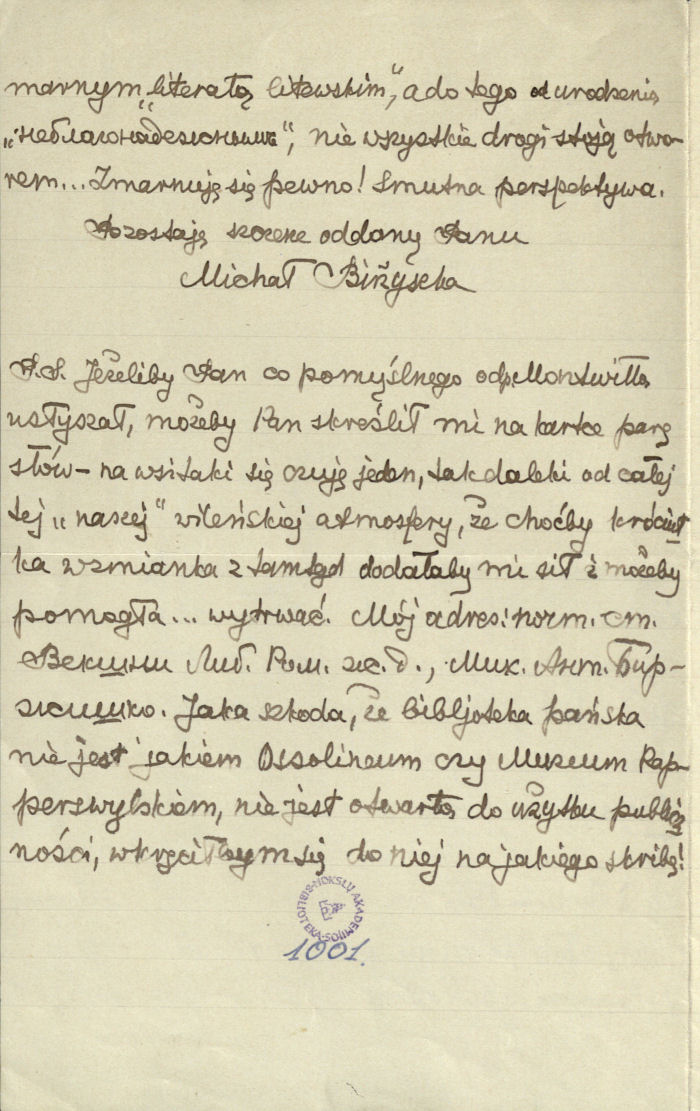 marnym „literatą litewskim”, a do tego od urodzenia
„неблагонадежным”, nie wszystkie drogi stoją otwo-
rem... Zmarnuję się pewno! Smutna perspektywa.
Pozostaję szczerze oddany Panu
Michał Biržyszka
P.S. Jeżeliby Pan co pomyślnego od p. Montwiłła
usłyszał, możeby Pan skreślił mi na kartce parę
słów – na wsi taki się czuję jeden, tak daleki od całej
tej „naszej” wileńskiej atmosfery, że choćby króciut
ka wzmianka z tamtąd dodałaby mi sił i możeby
pomogła... wytrwać. Mój adres: почт. ст.
Векшни Либ. Ром. ж. д., Мих. Ант. Бир-
жишко. Jaka szkoda, że bibljoteka pańska
nie jest jakiem Ossolineum czy Muzeum Rap-
perswylskiem, nie jest otwartą do użytku publicz
ności, wkręciłbym się do niej na jakiego skribę!
MOKSLŲ AKADEMIJOS BIBLIOTEKA
1001.